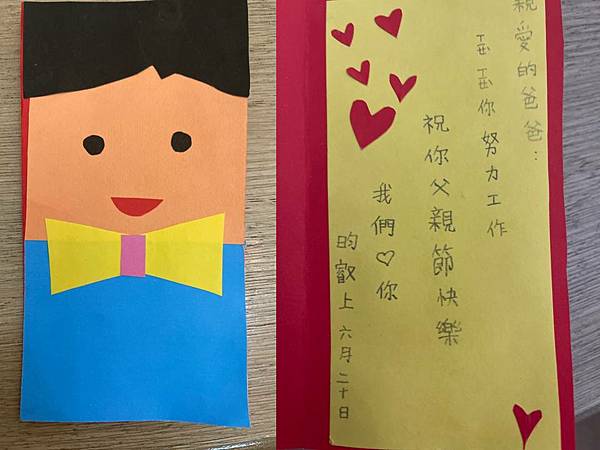 親愛的爸爸：
你努力工作
祝你父親節快樂
我們♡你
昀叡上 六月二十日